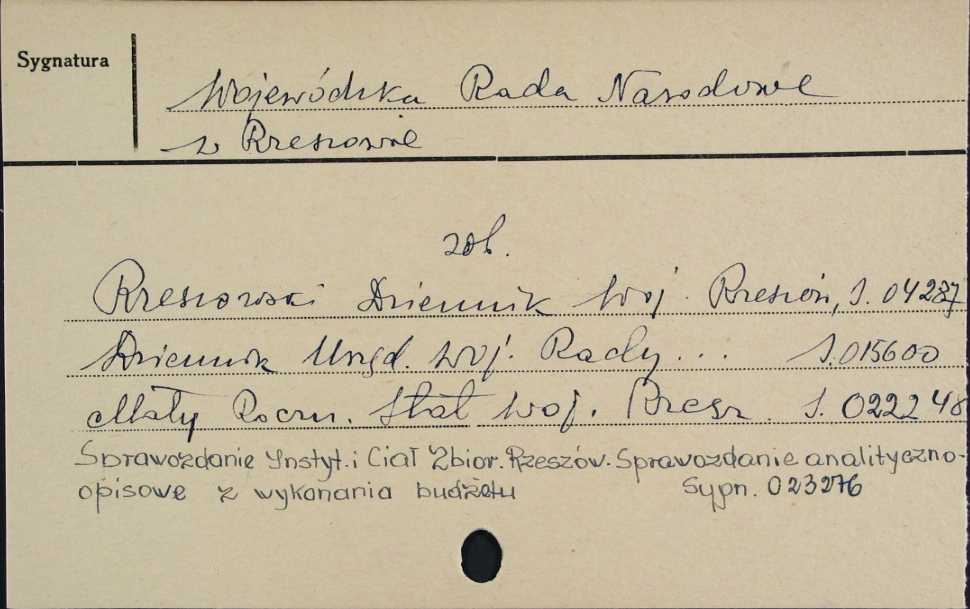 Sygnatura
Wojewódzka Rada Narodowa
w Rzeszowie
zob.
Rzeszowski Dziennik Woj. Rzeszów, S. 04287
Dziennik Urzęd. Woj. Rady... S. 015600
Mały Roczn. Stat. Woj. Rzesz. S. 022248
Sprawozdanie Instyt. i Ciał Zbior. Rzeszów. Sprawozdanie analityczno-
opisowe z wykonania budżetu Sygn. 023276